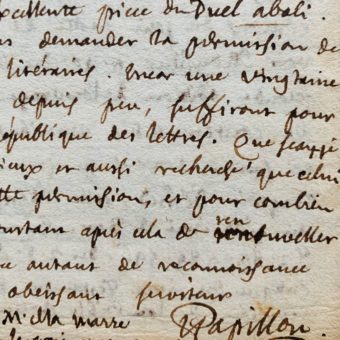 excellente piece du Duel aboli.
demander la permission de
literaires. Encor une vingtaine
depuis peu, suffiront pour
république des lettres. Que
ieux et aussi recherché que celui
permission, et pour combien
après cela de renouveller
autant de reconnoissance
obeissant serviteur
Papillon.